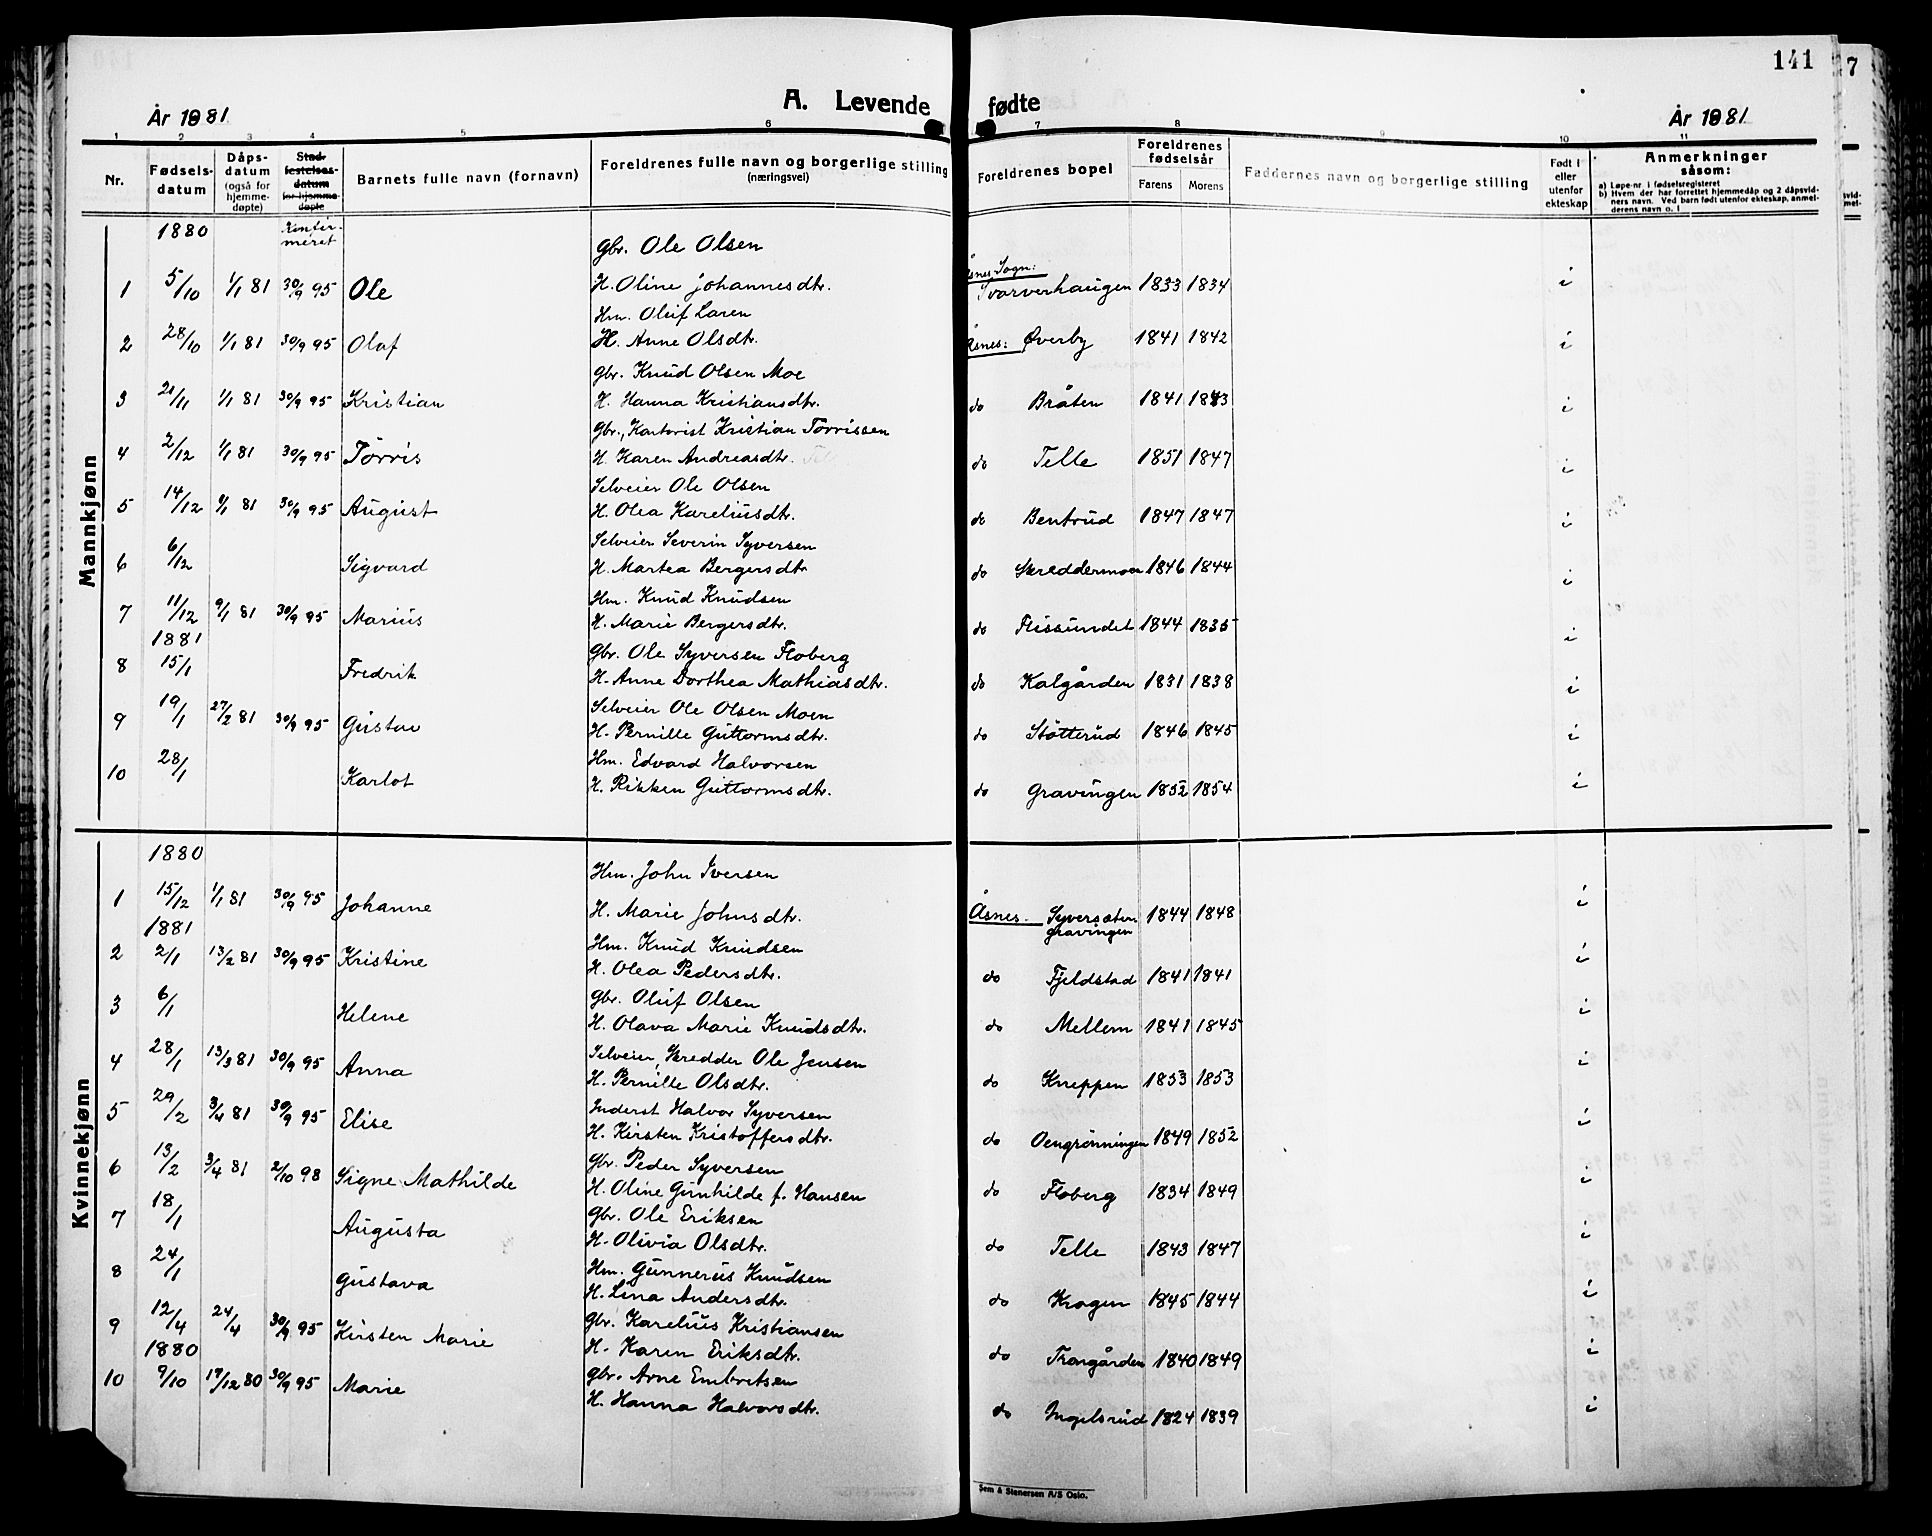 141
7
A. Levende fødte
År 1881
År 1881
1 2 3 4 5 6 7 8 9 10 11
Nr.
Fødsels-datum
Dåps-datum (også for hjemme-døpte)
Stad-festelses-datum for hjemme-døpte
Barnets fulle navn (fornavn)
Foreldrenes fulle navn og borgerlige stilling (næringsvei)
Foreldrenes bopel
Foreldrenes fødselsår
Farens Morens
Faddernes navn og borgerlige stilling
Født i eller utenfor ekteskap
Anmerkninger såsom:
a) Løpe-nr i fødselsregisteret
b) Hvem der har forrettet hjemmedåp og 2 dåpsvid-
ners navn. Ved barn født utenfor ekteskap, anmel-
derens navn o. l
Mannkjønn
1880 Konfir-
meret
gbr. Ole Olsen Åsnes Sogn:
1 5/10 1/1 81 30/9 95 Ole H. Oline Johannesdtr. Tvorverhaugen 1833 1834 i
Hm. Oluf Larsen
2 28/10 1/1 81 30/9 95 Olaf H. Anne Olsdtr. Åsnes: Øverby 1841 1842 i
gbr. Knud Olsen Moe
3 21/11 1/1 81 30/9 95 Kristian H. Hanna Kristiansdtr. do Bråten 1841 1843 i
gbr., Kontorist Kristian Tørrissen
4 2/12 1/1 81 30/9 95 Tørris H. Karen Andreasdtr. do Telle 1851 1847 i
Selveier Ole Olsen
5 14/12 9/1 81 30/9 95 August H. Olea Kareliusdtr. do Bentrud 1847 1847 i
Selveier Severin Syversen
6 6/12 Sigvard H. Martea Bergersdtr do Skreddermoen 1846 1844 i
Hm. Knud Knudsen
7 11/12 9/1 81 30/9 95 Marius H. Marie Bergersdtr. do Flissundet 1844 1835 i
1881
gbr. Ole Syversen Floberg
8 15/1 Fredrik H. Anne Dorthea Mathiasdtr. do Kalgården 1831 1838 i
Selveier Ole Olsen Moen
9 19/1 27/2 81 30/9 95 Gustav H. Pernille Guttormsdtr. do Støtterud 1846 1845 i
Hm. Edvard Halvorsen
10 28/1 Karlot H. Rikken Guttormsdtr. do Gravingen 1852 1854 i
Kvinnekjønn
1880
Hm. John Iversen
1 15/12 1/1 81 30/9 95 Johanne H. Marie Johnsdtr. Åsnes. Syversæter 1844 1848 i
gravingen
1881
Hm. Knud Knudsen
2 2/1 13/2 81 30/9 95 Kristine H. Olea Pedersdtr. do Fjeldstad 1841 1841 i
gbr. Oluf Olsen
3 6/1 Helene H. Olava Marie Knudsdtr. do Mellem 1841 1845 i
Selveier, Skredder Ole Jensen
4 28/1 13/3 81 30/9 95 Anna H. Pernille Olsdtr. do Kneppen 1853 1853 i
Inderst Halvor Syversen
5 29/2 3/4 81 30/9 95 Elise H. Kirsten Kristoffersdtr. do Oengrønningen 1849 1852 i
gbr. Peder Syversen
6 13/2 3/4 81 2/10 98 Signe Mathilde H. Oline Gunhilde f. Hansen do Floberg 1834 1849 i
gbr. Ole Eriksen
7 18/1 Augusta H. Olivia Olsdtr. do Telle 1843 1847 i
Hm. Gunnerus Knudsen
8 24/1 Gustava H. Lina Andersdtr. do Krogen 1845 1844 i
gbr. Karelius Kristiansen
9 12/4 24/4 30/9 95 Kirsten Marie H. Karen Eriksdtr. do Trangården 1840 1849 i
1880
gbr. Arne Embretsen
10 9/10 19/12 80 30/9 95 Marie H. Hanna Halvorsdtr. do Ingelsrud 1824 1839 i
Sem & Stenersen A/S Oslo.